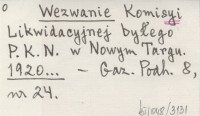 Wezwanie Komisyi
Likwidacyjnej byłego
P.K.N. w Nowym Targu.
1920... – Gaz. Podh. 8,
nr 24.